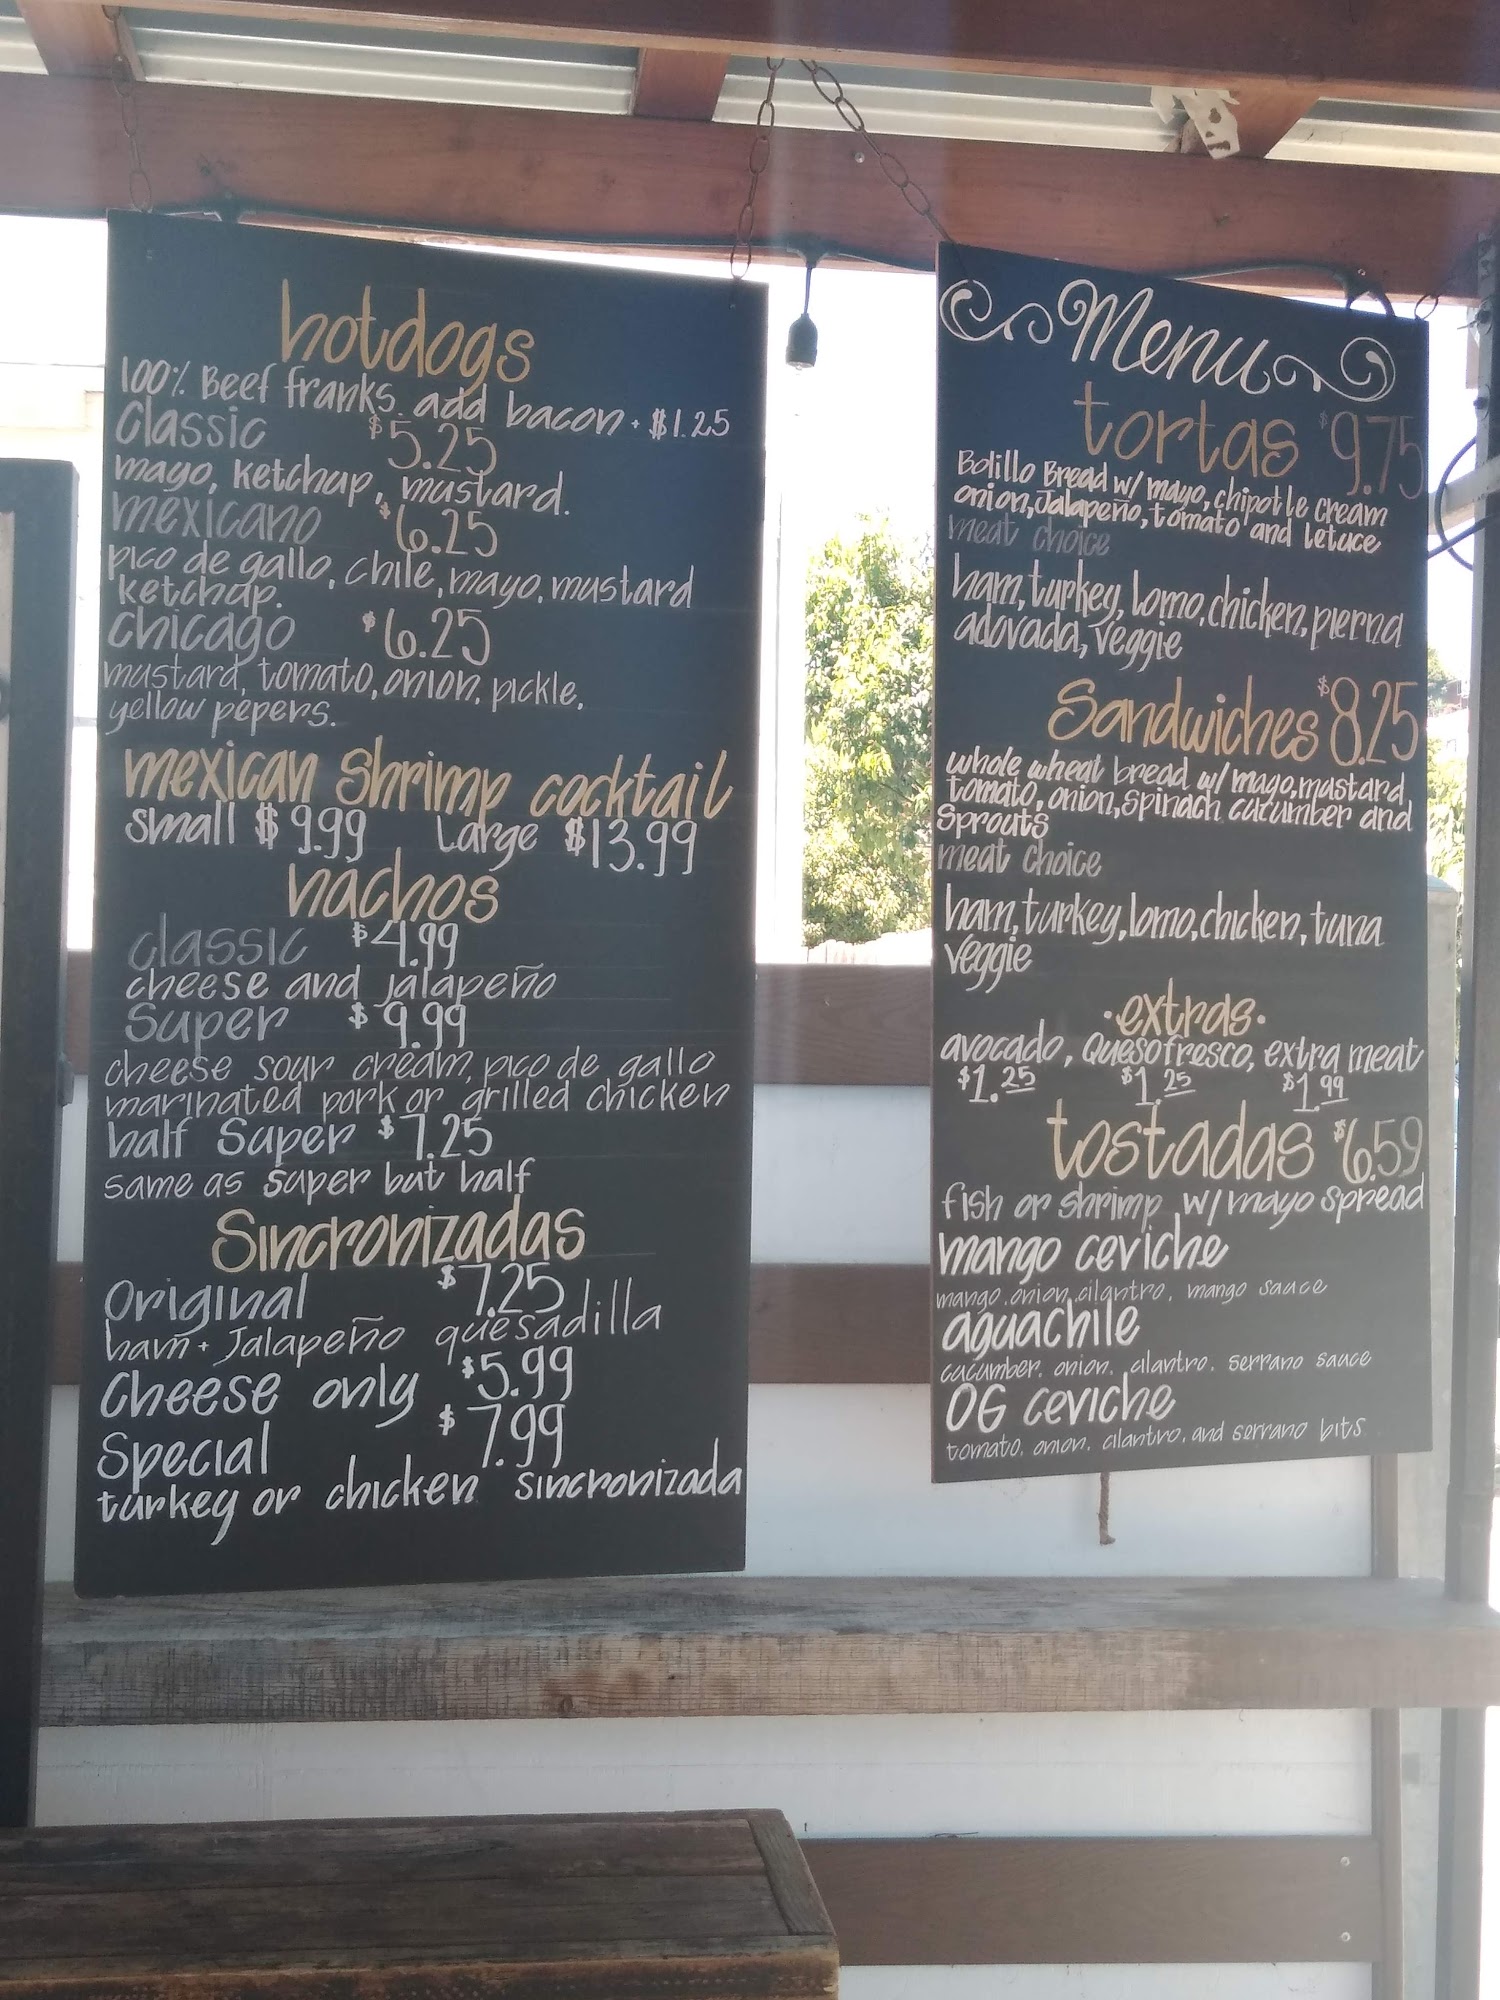 hotdogs
100% Beef franks. add bacon + $1.25
Classic $5.25
mayo, ketchup, mustard.
mexicano $6.25
pico de gallo, chile, mayo, mustard
ketchup.
chicago $6.25
mustard, tomato, onion, pickle,
yellow pepers.
mexican shrimp cocktail
small $9.99 Large $13.99
nachos
classic $4.99
cheese and jalapeño
Super $9.99
cheese sour cream, pico de gallo
marinated pork or grilled chicken
half Super $7.25
same as super but half
Sincronizadas
Original $7.25
ham + Jalapeño quesadilla
Cheese only $5.99
Special $7.99
turkey or chicken sincronizada
Menu
tortas $9.75
Bolillo Bread w/ mayo, chipotle cream
onion, Jalapeño, tomato and letuce
meat choice
ham, turkey, lomo, chicken, pierna
adovada, veggie
Sandwiches $8.25
whole wheat bread w/ mayo, mustard
tomato, onion, spinach cucumber and
Sprouts
meat choice
ham, turkey, lomo, chicken, tuna
veggie
·extras·
avocado, Queso fresco, extra meat
$1.25 $1.25 $1.99
tostadas $6.59
fish or shrimp w/ mayo spread
mango ceviche
mango, onion, cilantro, mango sauce
aguachile
cucumber, onion, cilantro, serrano sauce
OG ceviche
tomato, onion, cilantro, and serrano bits